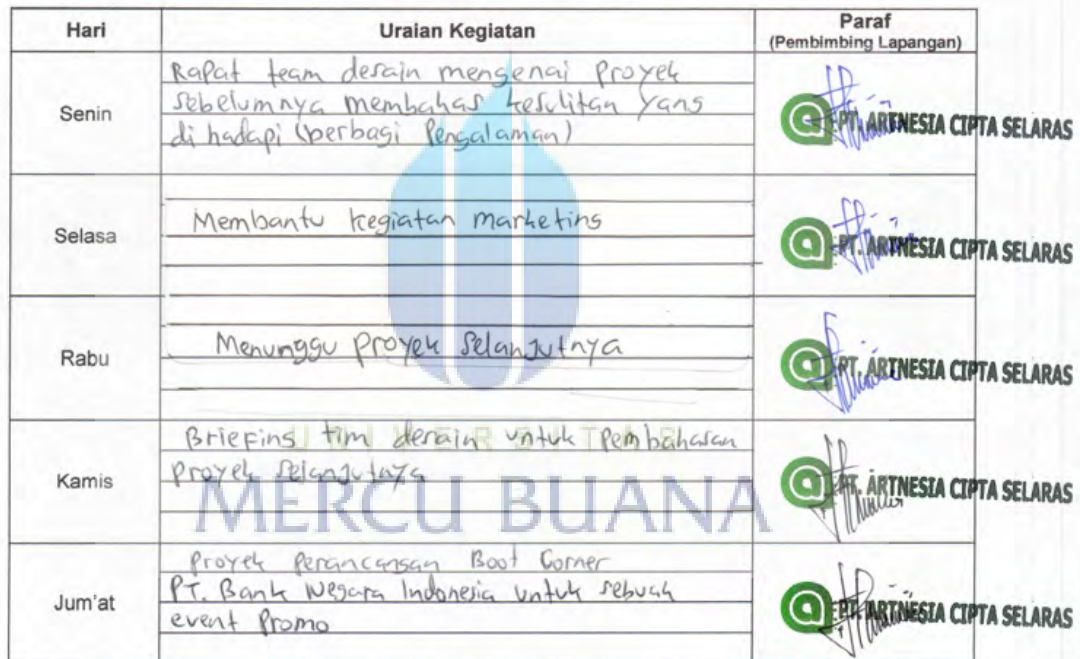 Hari Uraian Kegiatan Paraf
(Pembimbing Lapangan)
Senin
Rapat team desain mengenai proyek
sebelumnya membahas kesulitan yang
di hadapi (berbagi Pengalaman)
PT. ARTNESIA CIPTA SELARAS
Selasa
Membantu kegiatan marketing
PT. ARTNESIA CIPTA SELARAS
Rabu
Menunggu proyek selanjutnya
PT. ARTNESIA CIPTA SELARAS
Kamis
Briefing tim desain untuk pembahasan
proyek selanjutnya
PT. ARTNESIA CIPTA SELARAS
UNIVERSITAS
MERCU BUANA
Jum'at
Proyek Perancangan Boot Corner
PT. Bank Negara Indonesia untuk sebuah
event Promo
PT. ARTNESIA CIPTA SELARAS